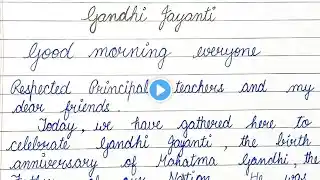 Gandhi Jayanti
Good morning everyone
Respected Principal, teachers and my
dear friends.
Today, we have gathered here to
celebrate Gandhi Jayanti, the birth
anniversary of Mahatma Gandhi, the
Father of our Nation. He was